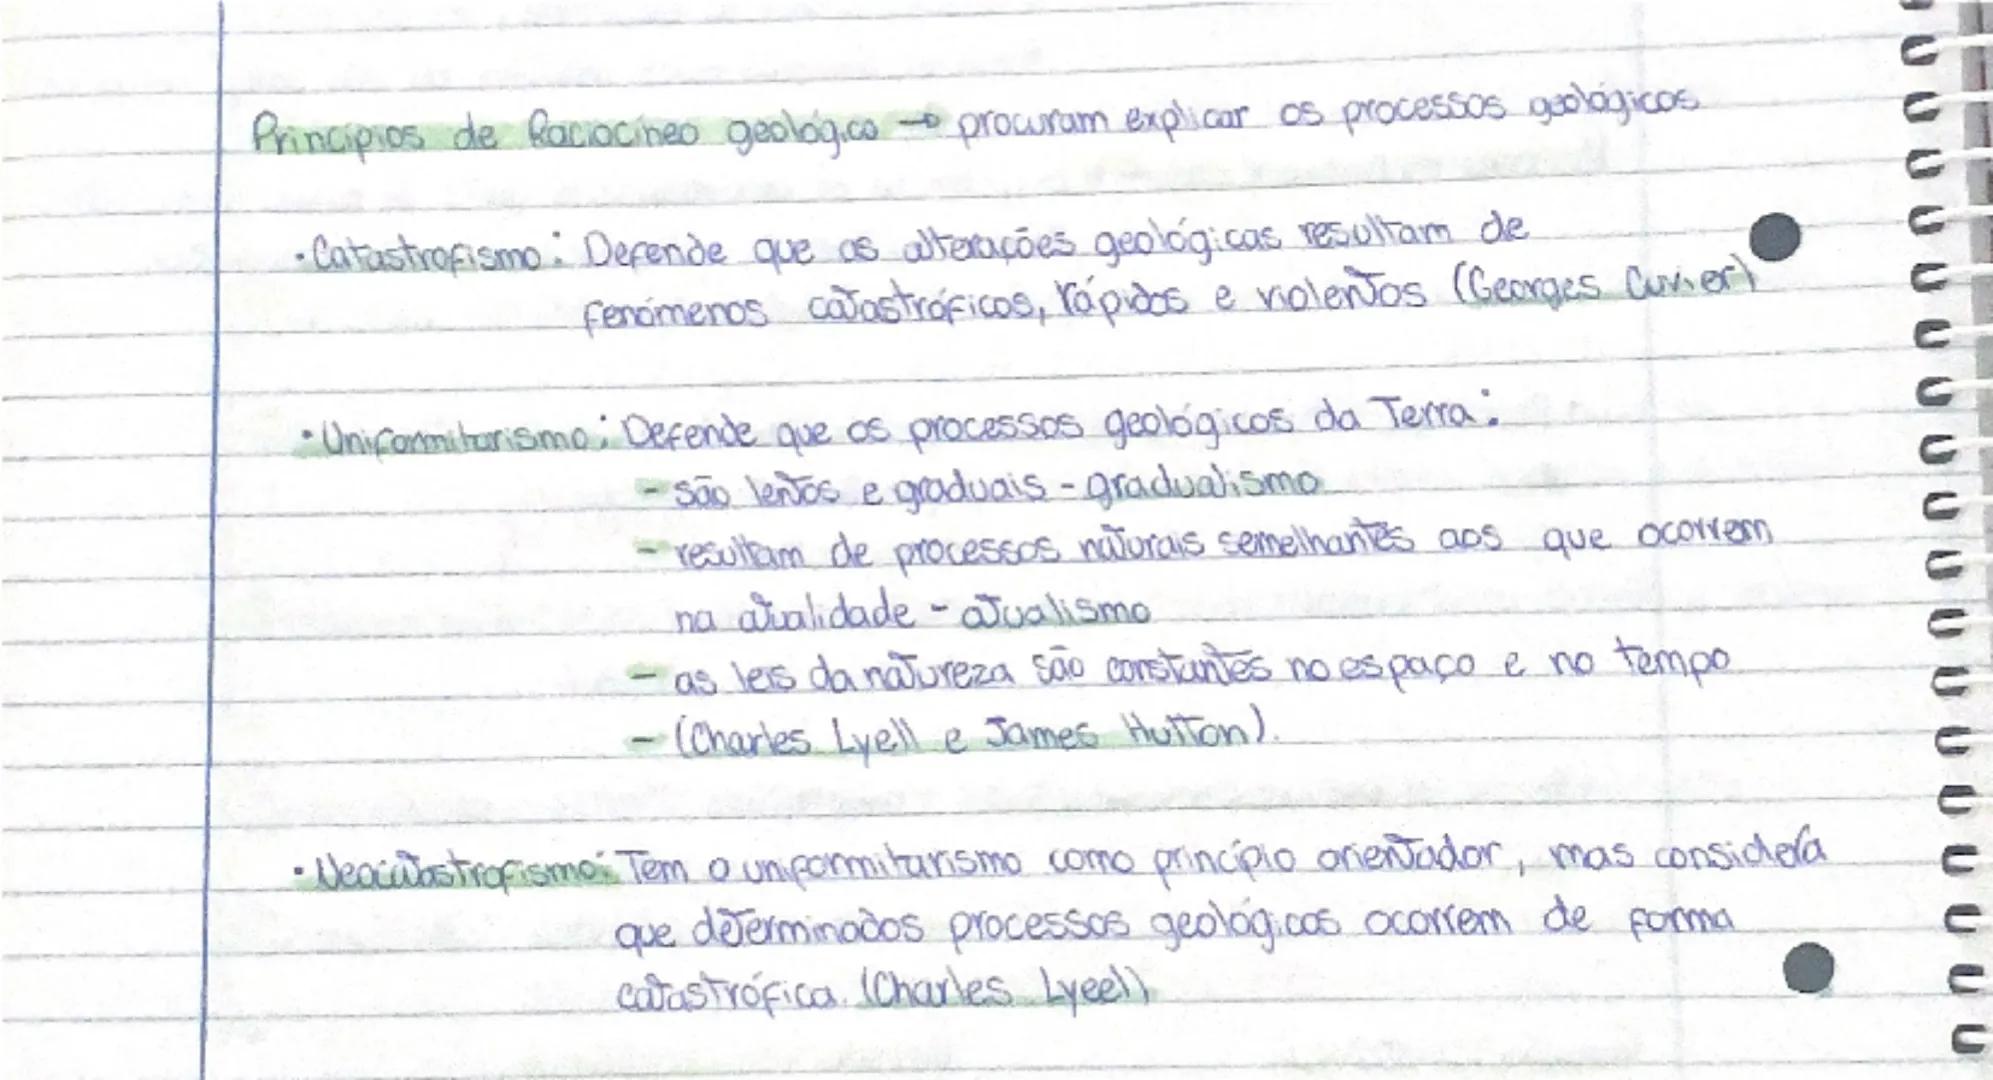 Princípios de Raciocíneo geológico → procuram explicar os processos geológicos
· Catastrofismo: Defende que as alterações geológicas resultam de
fenómenos catastróficos, rápidos e violentos (Georges Cuvier)
· Uniformitarismo: Defende que os processos geológicos da Terra:
- são lentos e graduais - gradualismo
- resultam de processos naturais semelhantes aos que ocorrem
na atualidade - atualismo
- as leis da natureza são constantes no espaço e no tempo
- (Charles Lyell e James Hutton).
· Neocatastrofismo: Tem o uniformitarismo como princípio orientador, mas considera
que determinados processos geológicos ocorrem de forma
catastrófica. (Charles Lyeel)